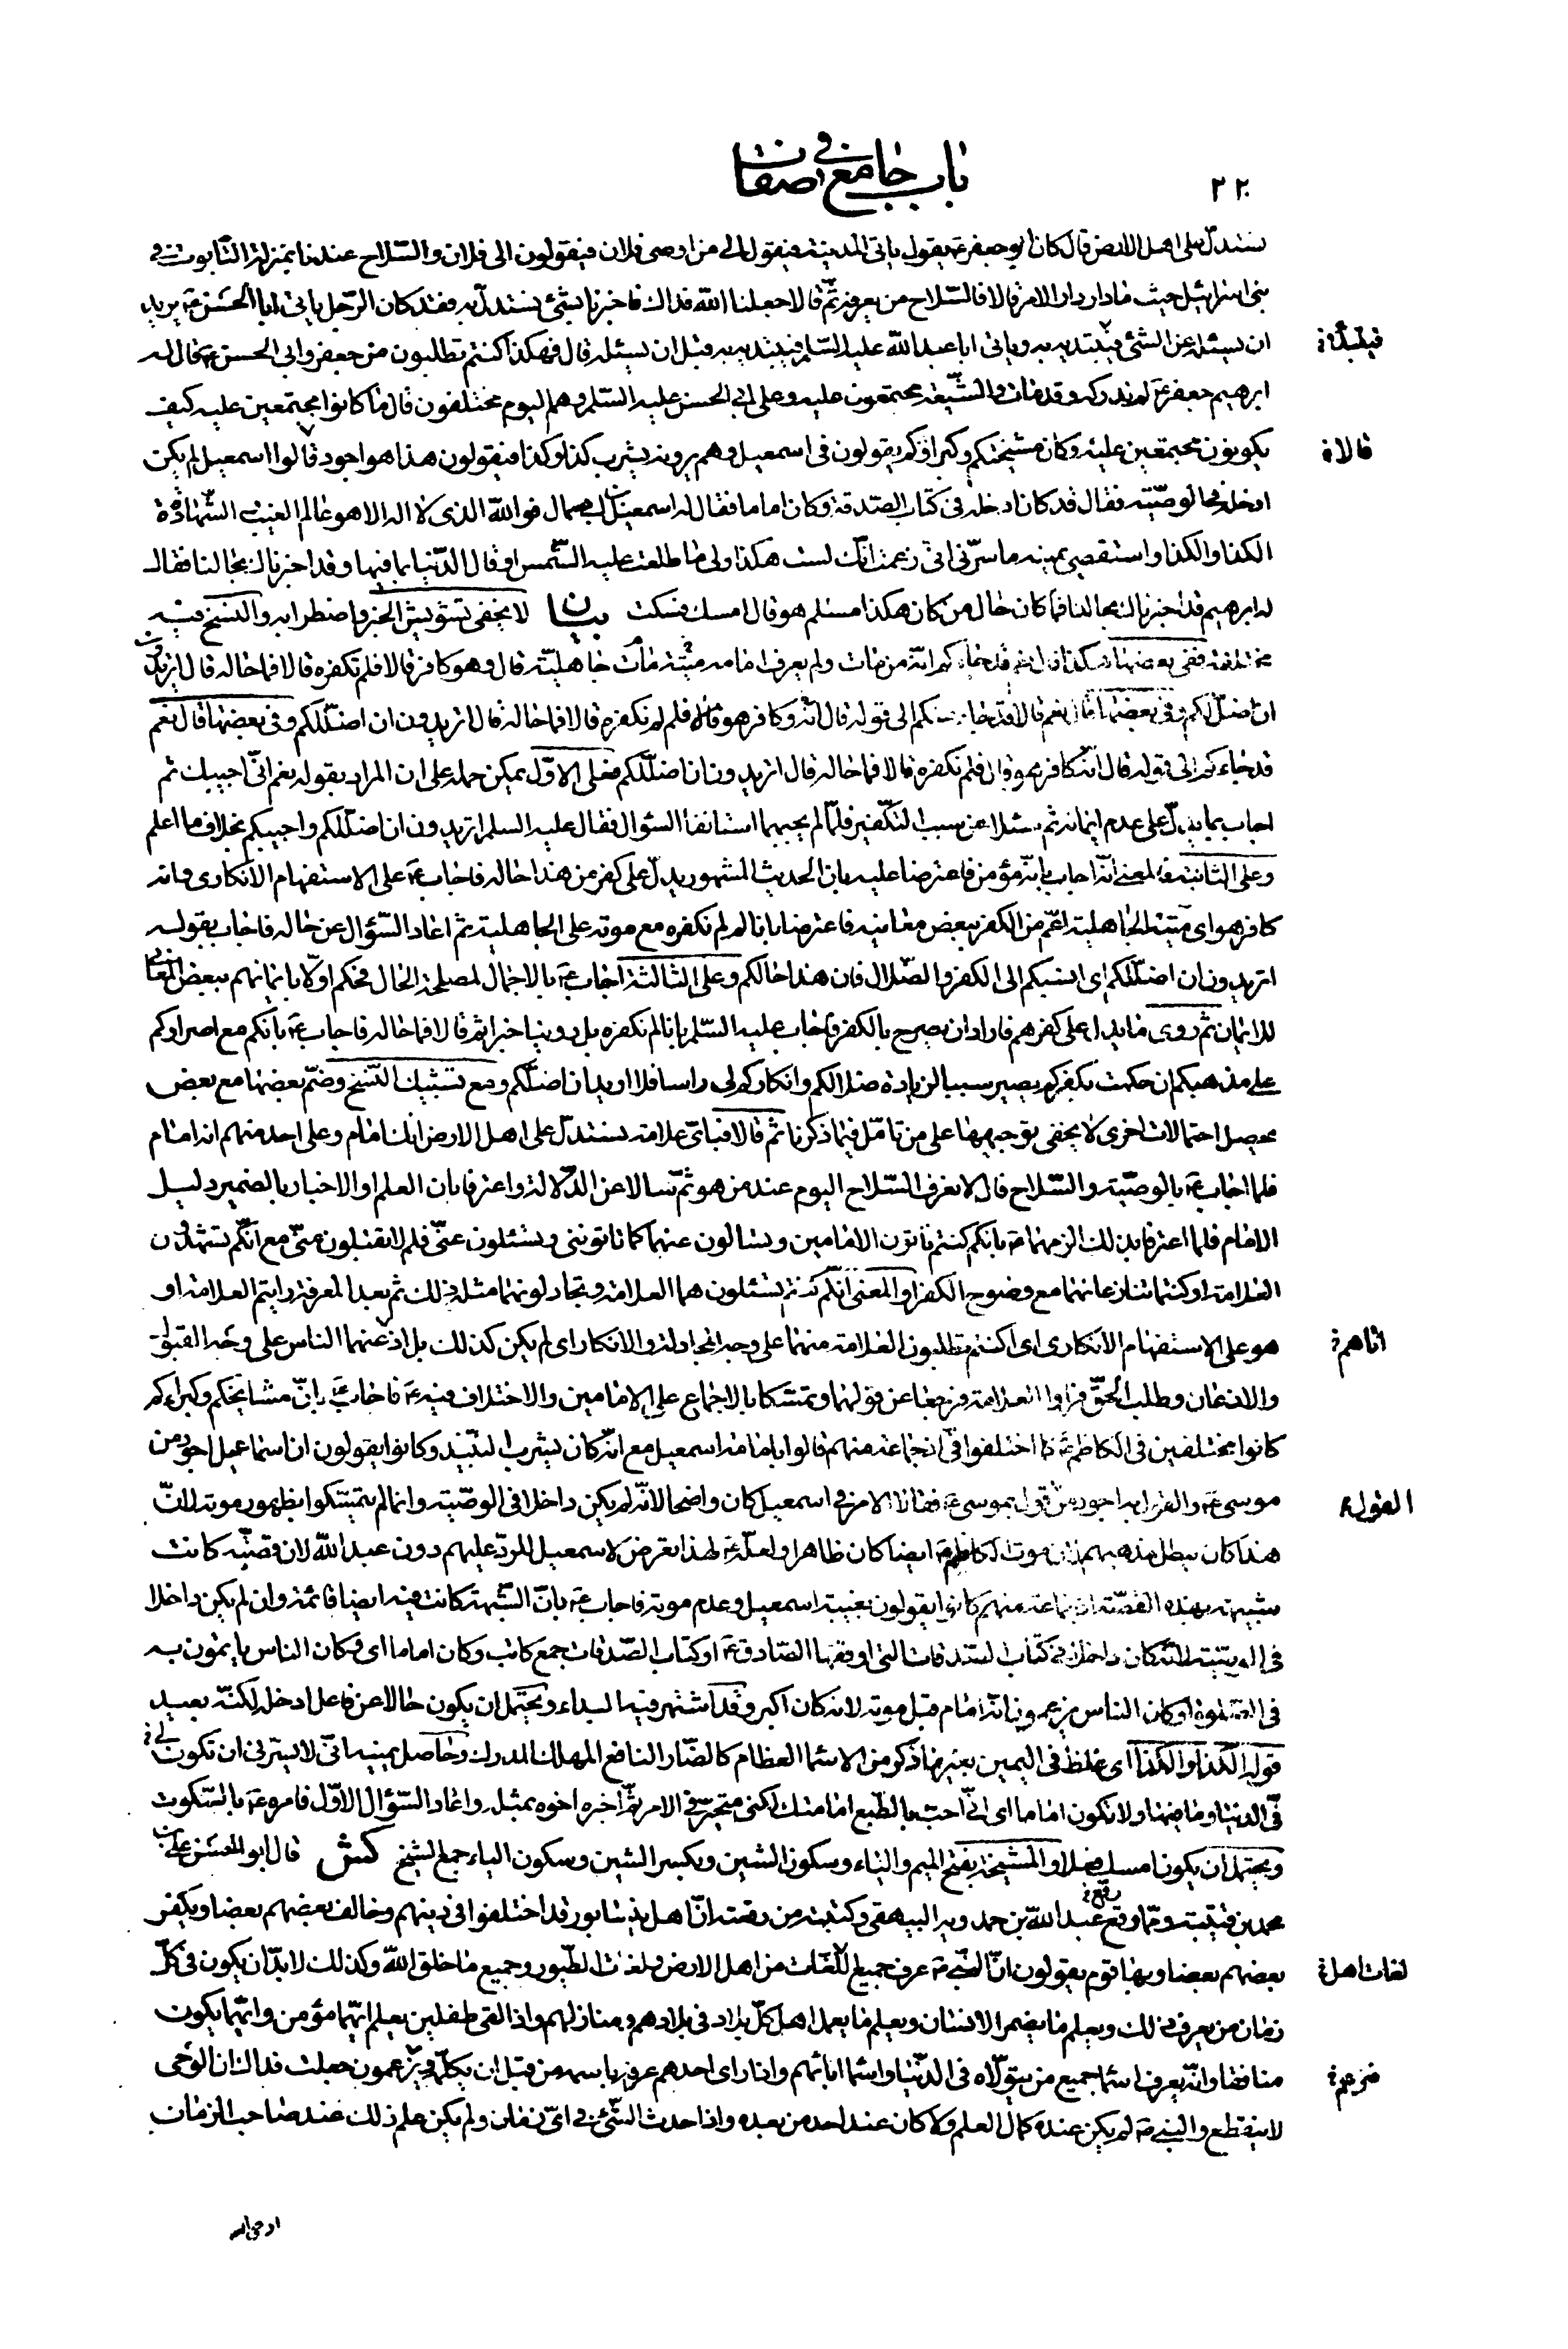 ٢٢٠
باب جامع في صفات
يستدل على اهل الارض قال كان ابو جعفر ع يقول ياتي المدينة فيقول الى من اوصى فلان فيقولون الى فلان والسّلاح عندنا بمنزلة التّابوت في
بني اسرائيل حيث ما دار دار الامر قالا فالسّلاح من يعرفه ثم قالا جعلنا الله فداك فاخبرنا بشئ نستدل به فقد كان الرّجل ياتي ابا الحسن ع يريد
ان يسئله عن الشئ فيبتديه به وياتي ابا عبد الله عليه السّلم فيبتديه به قبل ان يسئله قال فهكذا كنتم تطلبون من جعفر وابي الحسن ع قال له
فيبتدئه
ابرهيم جعفر ع لم ندركه وقد مات والشّيعة مجتمعون عليه وعلى ابي الحسن عليه السّلم وهم اليوم مختلفون قال ما كانوا مجتمعين عليه كيف
يكونون مجتمعين عليه وكان مشيختكم وكبراؤكم يقولون في اسمعيل وهم يرونه يشرب كذا وكذا فيقولون هذا هو اجود قالوا اسمعيل لم يكن
قالا
ادخله في الوصيّة فقال قد كان ادخله في كتاب الصّدقة وكان اماما فقال له اسمعيل بن ابي سمال فوالله الذي لا اله الا هو عالم الغيب والشّهادة
الكذا والكذا واستقصى يمينه ما سرّني اني زعمت انّك لست هكذا ولي ما طلعت عليه الشّمس او قال الدّنيا بما فيها وقد اخبرناك بحالنا فقال
له ابرهيم قد اخبرناك بحالنا فما كان حال من كان هكذا مسلم هو قال امسك فسكت بيان لا يخفى تشويش الخبر واضطرابه والنسخ فيه
مختلفة ففي بعضها هكذا قال نعم قد جاءكم انه من مات ولم يعرف امامه ميتة مات جاهليّة قال وهو كافر قالا فلم تكفره قالا فما حاله قال اتريدون
ان اضلّلكم وفي بعضها قال نعم قالا قد جاءكم الى قوله قال انّه وكافر هو قالا فلم لم تكفره قالا فما حاله قال اتريدون ان اضلّلكم وفي بعضها قال نعم
قد جاءكم الى قوله قال انّه كافر هو قال فلم تكفره قالا فما حاله قال اتريدون ان اضلّلكم فعلى الاوّل يمكن حمله على ان المراد بقوله نعم انّي اجيبك ثم
اجاب بما يدل على عدم ايمانه ثم سئلا عن سبب التّكفير فلمّا لم يجبهما استانفا السؤال فقال عليه السلم اتريدون ان اضلّلكم واجيبكم بخلاف ما اعلم
وعلى الثانية فالمعنى انّه اجاب بانّه مؤمن فاعترضا عليه بان الحديث المشهور يدل على كفر من هذا حاله فاجاب ع على الاستفهام الانكاري وانه
كافر هو اي ميتة الجاهلية اعم من الكفر ببعض معانيه فاعترضا بانا لم لم نكفره مع موته على الجاهلية ثم اعاد السّؤال عن حاله فاجاب بقوله
اتريدون ان اضلّلكم اي انسبكم الى الكفر والضّلال فان هذا حالكم وعلى الثالثة اجاب ع بالاجمال لمصلحة الحال فحكم اوّلا بايمانهم ببعض المعاني
للايمان ثم روى ما يدل على كفرهم فاراد ان يصرح بالكفر فاجاب عليه السّلم بانا لم نكفره بل روينا خبرا ثم قالا فما حاله فاجاب ع بانّكم مع اصراركم
على مذهبكم ان حكمت بكفركم يصير سببا لزيادة ضلالكم وانكاركم لي راسا فلا اريد ان اضلّكم ومع تشبيك النّسخ وضمّ بعضها مع بعض
يحصل احتمالات اخرى لا يخفى توجيهها على من تامّل فيما ذكرنا ثم قالا فباي علامة نستدل على اهل الارض انك امام وعلى احد منهم انه امام
فلما اجاب ع بالوصيّة والسّلاح قالا لا نعرف السّلاح اليوم عند من هو ثمّ سالا عن الدّلالة واعترفا بان العلم او الاخبار بالضمير دليل
الامام فلما اعترفا بذلك الزمهما ع بانكم كنتم تاتون الامامين وتسالون عنهما كما تاتونني وتسئلون عنّي فلم لا تقبلون منّي مع انّكم تشهدون
العلامة او كنتما تنازعانهما مع وضوح الكفر او المعنى انّكم كنتم تسئلون هما العلامة وتجادلونهما مثل ذلك ثم بعد المعرفة رايتم العلامة او
هو على الاستفهام الانكاري اي اكنتم تطلبون العلامة منهما على وجه المجادلة والانكار اي لم يكن كذلك بل اذعنهما الناس على وجه القبول
اتاهم
والاذعان وطلب الحقّ فراوا العلامة فرجعا عن قولهما وتمسّكا بالاجماع على الامامين والاختلاف فيه ع فاجاب ع بانّ مشايخكم وكبراءكم
كانوا مختلفين في الكاظم ع كما اختلفوا فيّ اذ جماعة منهم قالوا بامامة اسمعيل مع انّه كان يشرب النّبيذ وكانوا يقولون ان اسماعيل اجود من
موسى ع والقول به اجود من قول بموسى ع فقالا الامر في اسمعيل كان واضحا لانّه لم يكن داخلا في الوصيّة وانما لم يتمسّكوا بظهور موته لانّ
القول
هذا كان يبطل مذهبهم لان موت الكاظم ع ايضا كان ظاهرا ولعلّه ع لهذا تعرض لاسمعيل للردّ عليهم دون عبد الله لان قصّته كانت
شبيهة بهذه القصّة اذ جماعة منهم كانوا يقولون بغيبة اسمعيل وعدم موته فاجاب ع بانّ الشّبهة كانت فيه ايضا قائمة وان لم يكن داخلا
في الوصيّة لانّه كان داخلا في كتاب الصّدقات التي اوقفها الصّادق ع او كتاب الصّدقات جمع كاتب وكان اماما اي وكان الناس ياتمّون به
في الصّلوة او كان الناس يزعمون انّه امام قبل موته لانه كان اكبر وقد اشتهر فيه البداء ويحتمل ان يكون حالا عن فاعل ادخله لكنّه بعيد
قوله الكذا والكذا اي غلّظ في اليمين بغير ما ذكر من الاسماء العظام كالضّار النافع المهلك المدرك وحاصل يمينه انّي لا يسرّني ان تكون لي
في الدنيا وما فيها ولا تكون اماما اي انّي احبّ بالطّبع امامتك لكنّي متحيّر في الامر ثمّ اخبره اخوه بمثله واعاد السّؤال الاوّل فامره ع بالسّكوت
ويحتمل ان يكون امسك فعلا والمشيخة بفتح الميم والياء وسكون الشين وبكسر الشين وسكون الياء جمع الشيخ كش قال ابو الحسن علي بن
محمد بن قتيبة ومما وقع عبد الله بن حمدويه البيهقي وكتبته من رقعته انّ اهل نيشابور قد اختلفوا في دينهم وخالف بعضهم بعضا ويكفر
رقع
بعضهم بعضا وبها قوم يقولون انّ النّبي ص عرف جميع اللّغات من اهل الارض ولغات الطّيور وجميع ما خلق الله وكذلك لا بدّ ان يكون في كلّ
لغات اهل
زمان من يعرف ذلك ويعلم ما يضمر الانسان ويعلم ما يعمل اهل كلّ بلاد في بلادهم ومنازلهم واذا لقى طفلين يعلم ايّهما مؤمن وايّهما يكون
منافقا وانّه يعرف اسماء جميع من يتولّاه في الدّنيا واسماء ابائهم واذا راى احدهم عرفه باسمه من قبل ان يكلّمه ويزعمون جعلت فداك ان الوحى
فزعم
لا ينقطع والنبي ص لم يكن عنده كمال العلم ولا كان عند احد من بعده واذا حدث الشّئ في ايّ زمان ولم يكن علم ذلك عند صاحب الزمان
اوحى الله